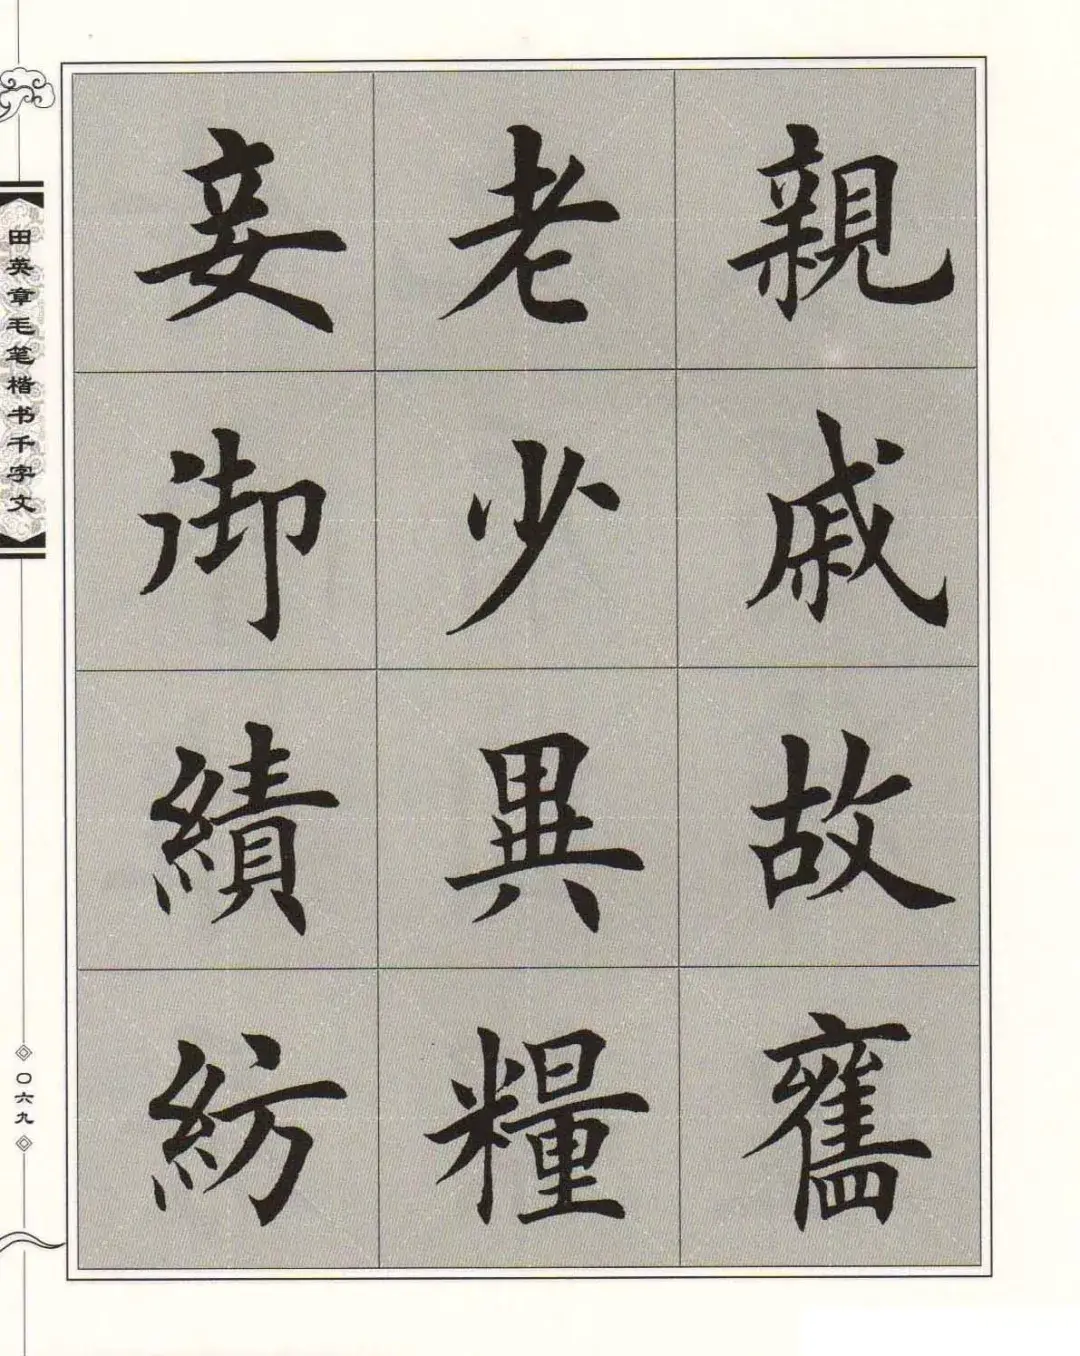 親戚故舊
老少異糧
妾御績紡
田英章毛笔楷书千字文
〇六九